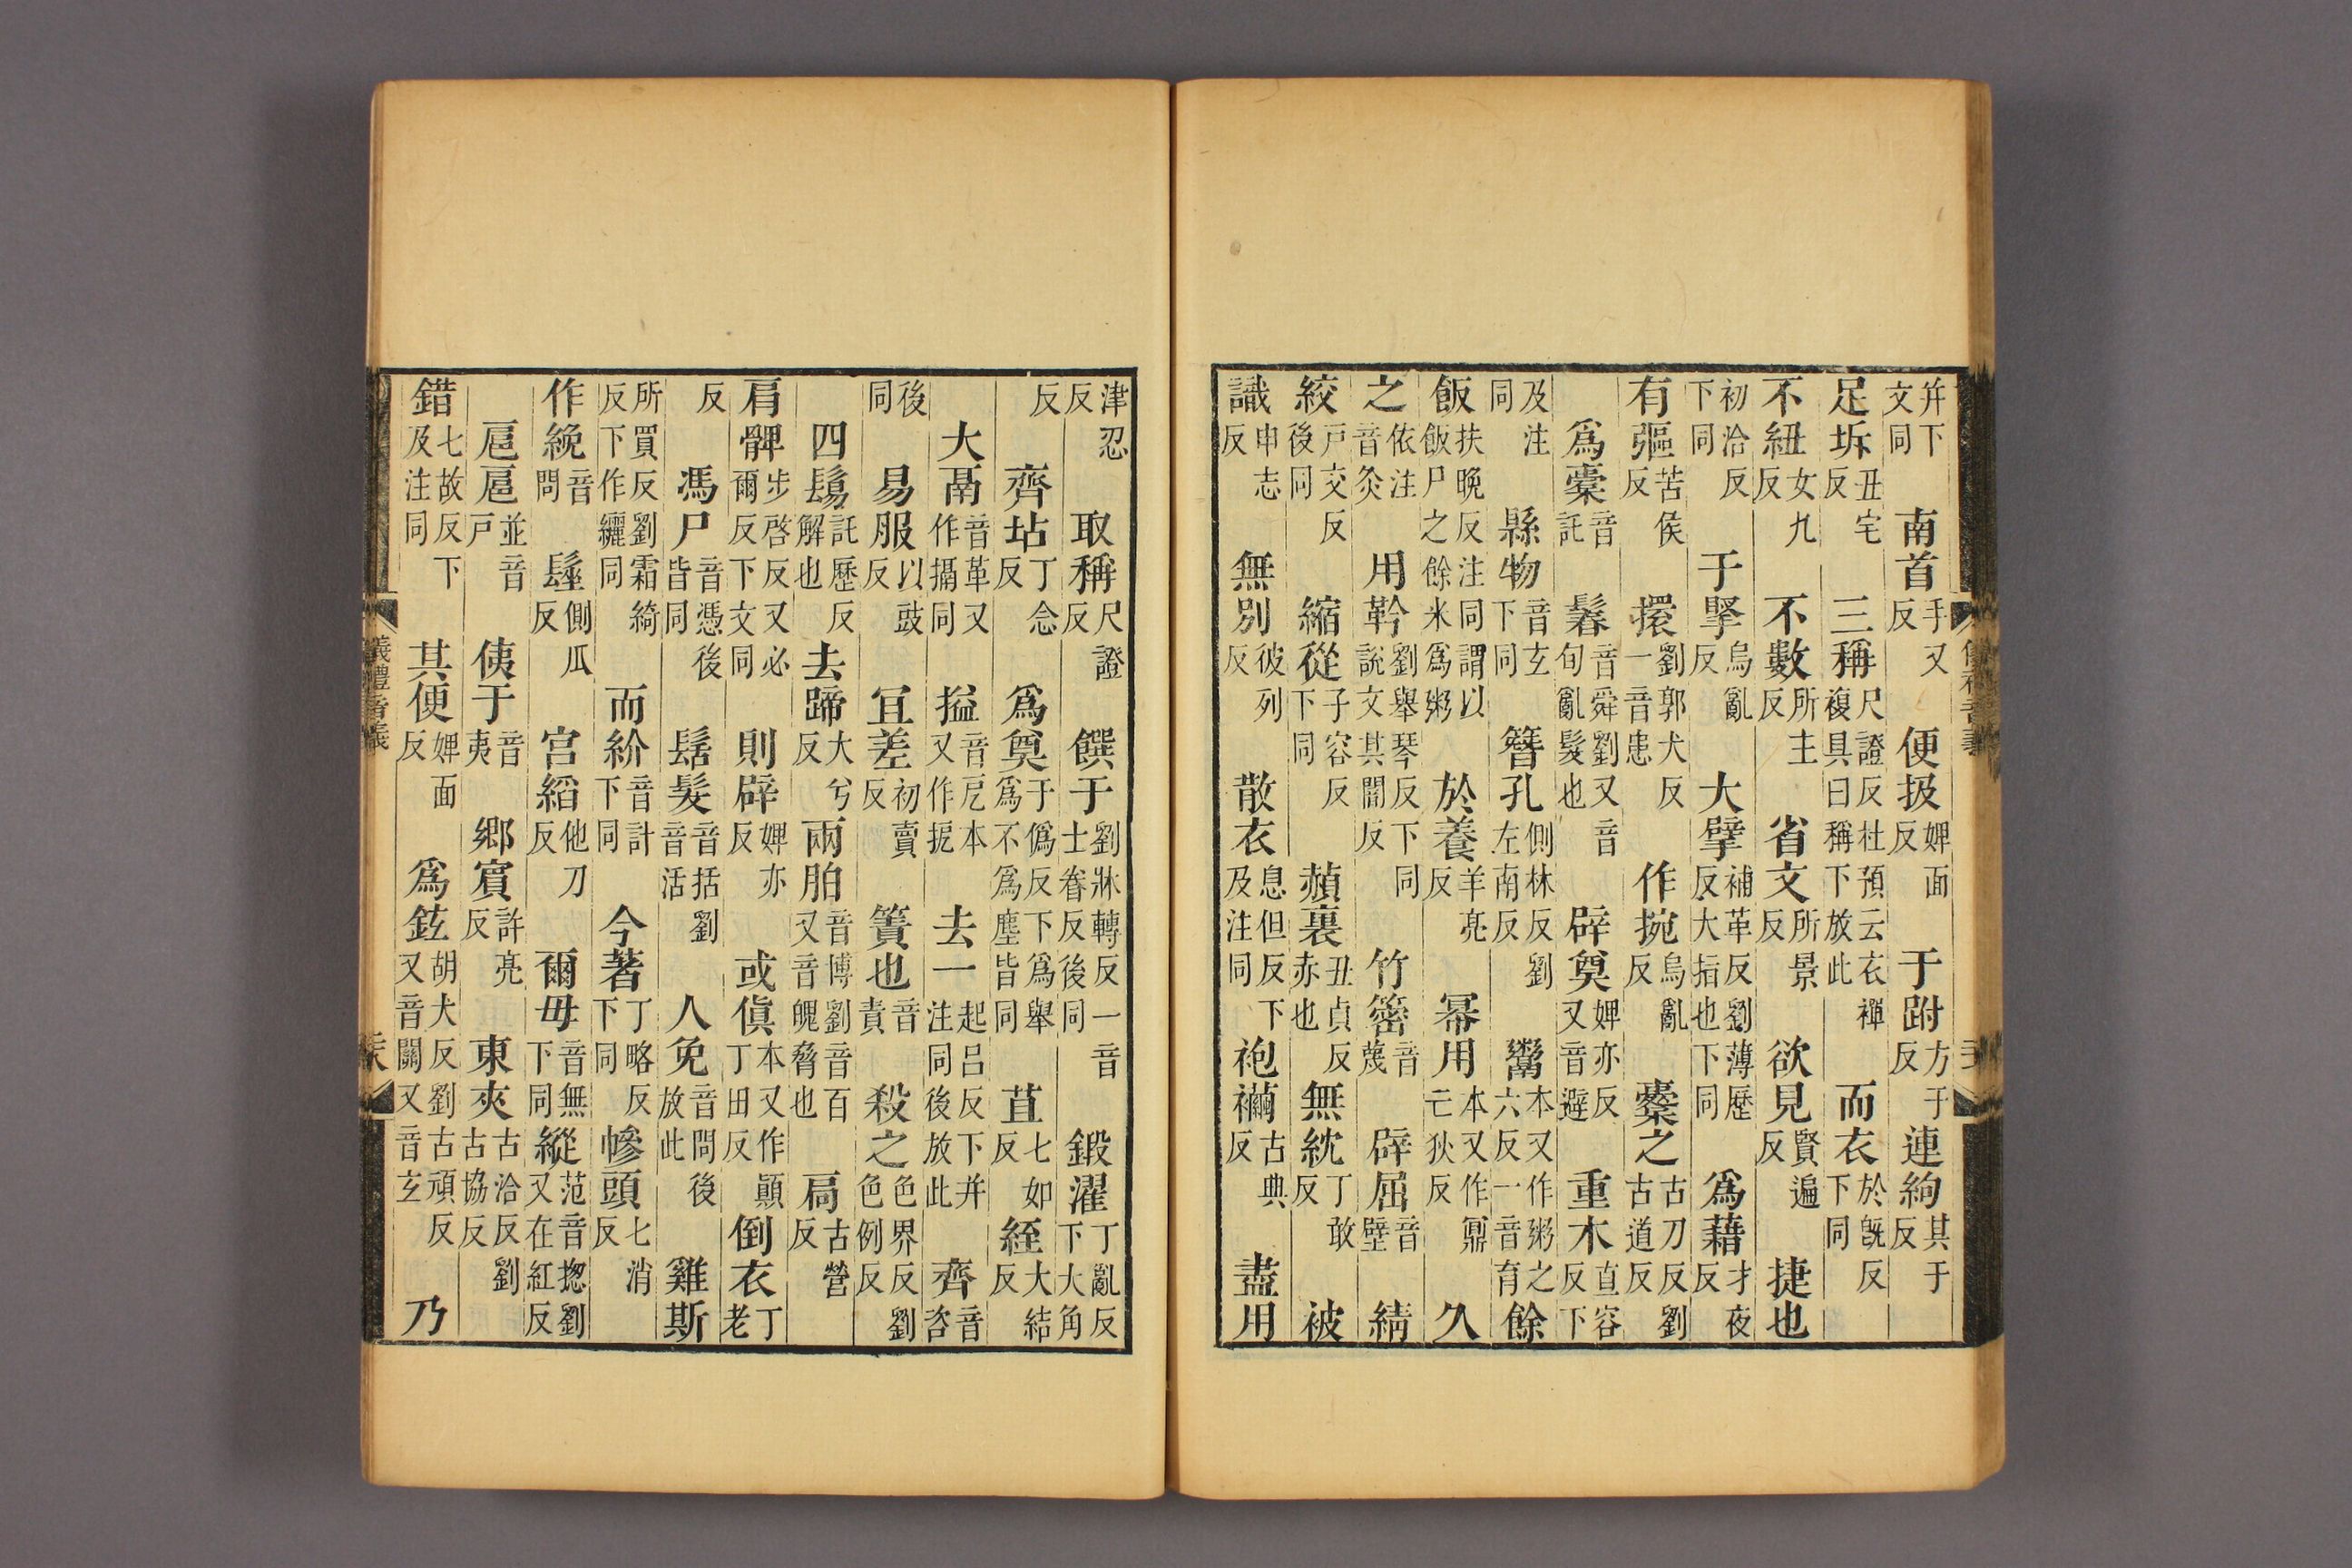 并下文同南首手又反便扱婢面反于跗方于反連絇其于反
足坼丑宅反三稱尺證反杜預云衣禪複具曰稱下放此而衣於旣反下同
不紐女九反不數所主反省文所景反欲見賢遍反捷也
初洽反下同于掔烏亂反大擘補革反劉薄歷反大指也下同爲藉才夜反
有彄苦侯反擐劉郭犬反一音患作捥烏亂反櫜之古刀反劉古道反
爲橐音託鬊音舜劉又音旬亂髮也辟奠婢亦反又音避重木直容反下
及注同縣物音玄下同簪孔側林反劉左南反鬻本又作粥之六反一音育餘
飯扶晚反注同謂以飯尸之餘米爲粥於養羊亮反幂用本又作鼏亡狄反久
之依注音灸用靲劉舉琴反下同說文其闇反竹䈼音蔑辟屈音壁綪
絞戶交反後同縮從子容反下同赬裏丑貞反赤也無紞丁敢反被
識申志反無別彼列反散衣息但反下及注同袍襺古典反盡用
津忍反取稱尺證反饌于劉牀轉反一音士眷反後同鍛濯丁亂反下大角
反齊坫丁念反爲奠于僞反下爲舉爲不爲塵皆同苴七如反絰大結反
大鬲音革又作搹同搤音厄本又作扼去一起呂反下并注同後放此齊音咨
後同易服以豉反宜差初賣反簀也音責殺之色界反劉色例反
四鬄託歷反解也去蹄大兮反兩胉音博劉音百又音魄脅也扃古營反
肩髀步啓反又必爾反下文同則辟婢亦反或傎本又作顚丁田反倒衣丁老
反馮尸音憑後皆同髺髮音括劉音活人免音問後放此雞斯
所買反劉霜綺反下作纚同而紒音計下同今著丁略反下同幓頭七消反
作絻音問髽側瓜反宮縚他刀反爾毋音無下同縱范音揔劉又在紅反
扈扈並音戶侇于音夷鄉賓許亮反東夾古洽反劉古協反
錯七故反下及注同其便婢面反爲鉉胡犬反劉古頑反又音關又音玄乃
儀禮音義